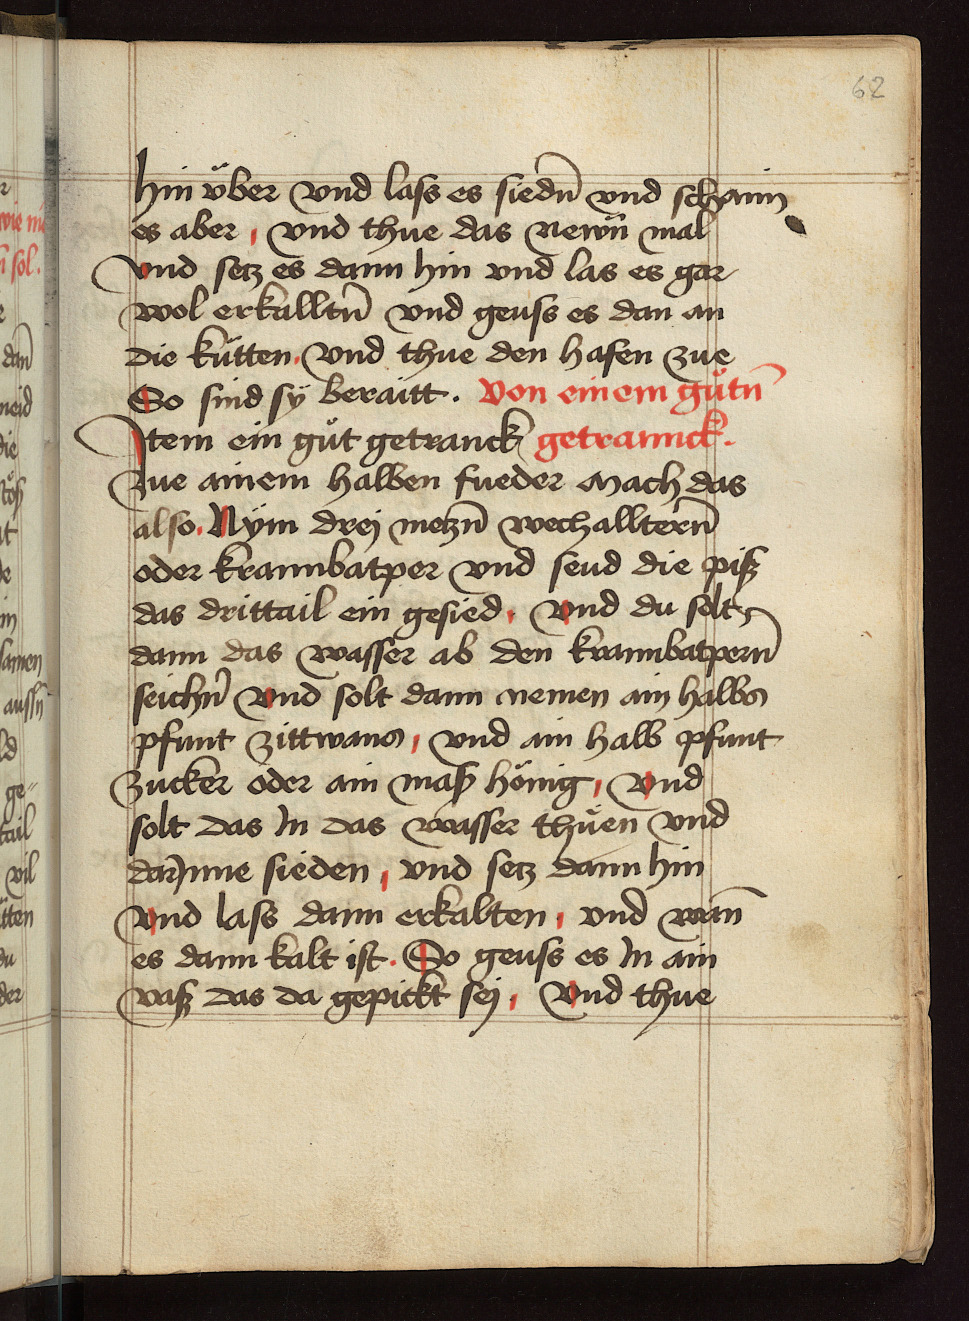 62
hin vber vnd lass es siedn̄ vnd schaim
es aber, vnd thue das newn̄ mal
vnd setz es dann hin vnd las es gar
wol erkalltn̄ vnd geuss es dan an
die kütten. vnd thue den hafen zue
So sind sy beraitt. Von einem gůtn̄
Item ein gůt getranck getrannck.
Zue ainem halben fueder mach das
also. Nym drej metzn̄ wechalltern̄
oder krannbatper vnd seud die piß
das drittail ein gesied, vnd du solt
dann das wasser ab den krannbatpern̄
seichn̄ vnd solt dann nemen ain halbs
pfunt zittwans, vnd ain halb pfunt
zucker oder ain maß hönig, vnd
solt das In das wasser thuen vnd
darJnne sieden, vnd setz dann hin
vnd lass dann erkalten, vnd wan̄
es dann kalt ist. So geuss es In ain
vaß das da gepickt sej, vnd thue